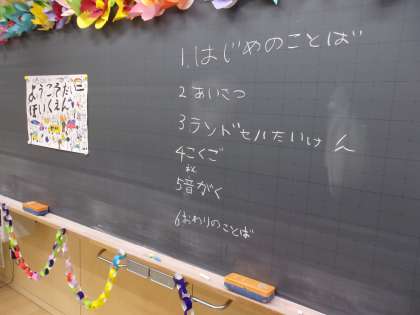 1.はじめのことば
2 あいさつ
3 ランドセルたいけん
4こくご
5音がく
6おわりのことば
ようこそ
ほいくえん